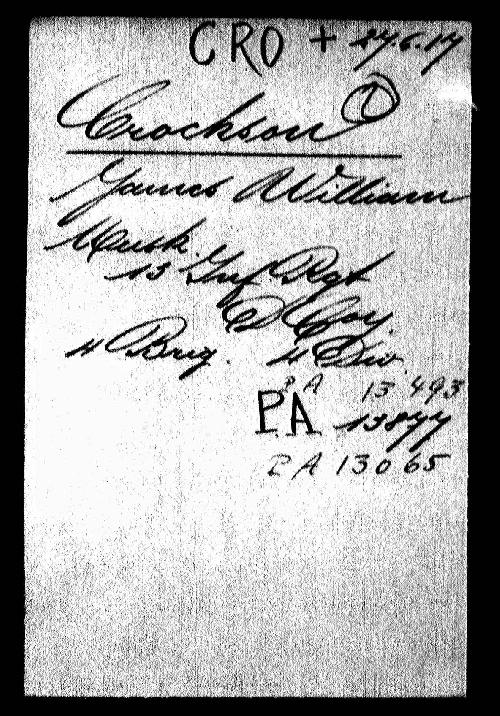 CRO + 27.6.17
Crockson 1
James William
Musk.
13 Inf Rgt
D Coy.
4 Brig. 4 Div.
PA 13493
PA 13877
PA 13065